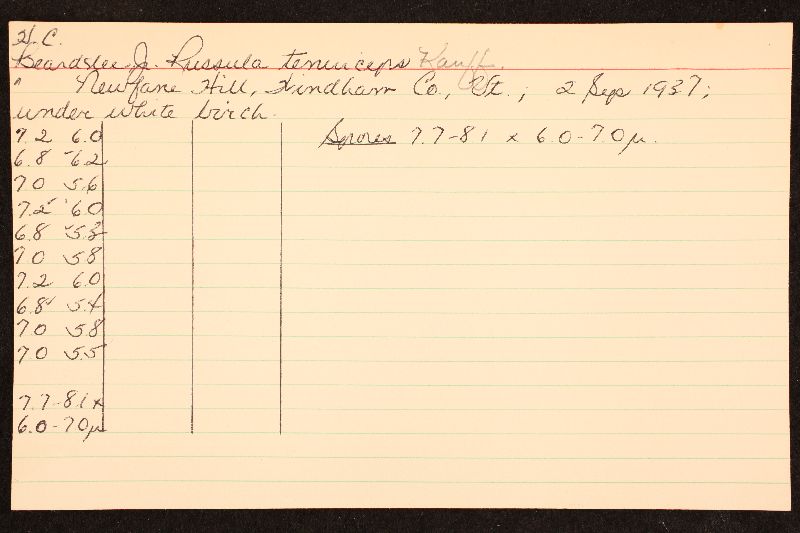 H.C.
Beardslee Jr. Russula tenuiceps Kauff.
" Newfane Hill, Windham Co., Vt.; 2 Sep 1937;
under white birch.
Spores 7.7-8.1 x 6.0-7.0µ.
7.2 6.0
6.8 6.2
7.0 5.6
7.2 6.0
6.8 5.8
7.0 5.8
7.2 6.0
6.8 5.4
7.0 5.8
7.0 5.5
7.7-8.1 x
6.0-7.0µ